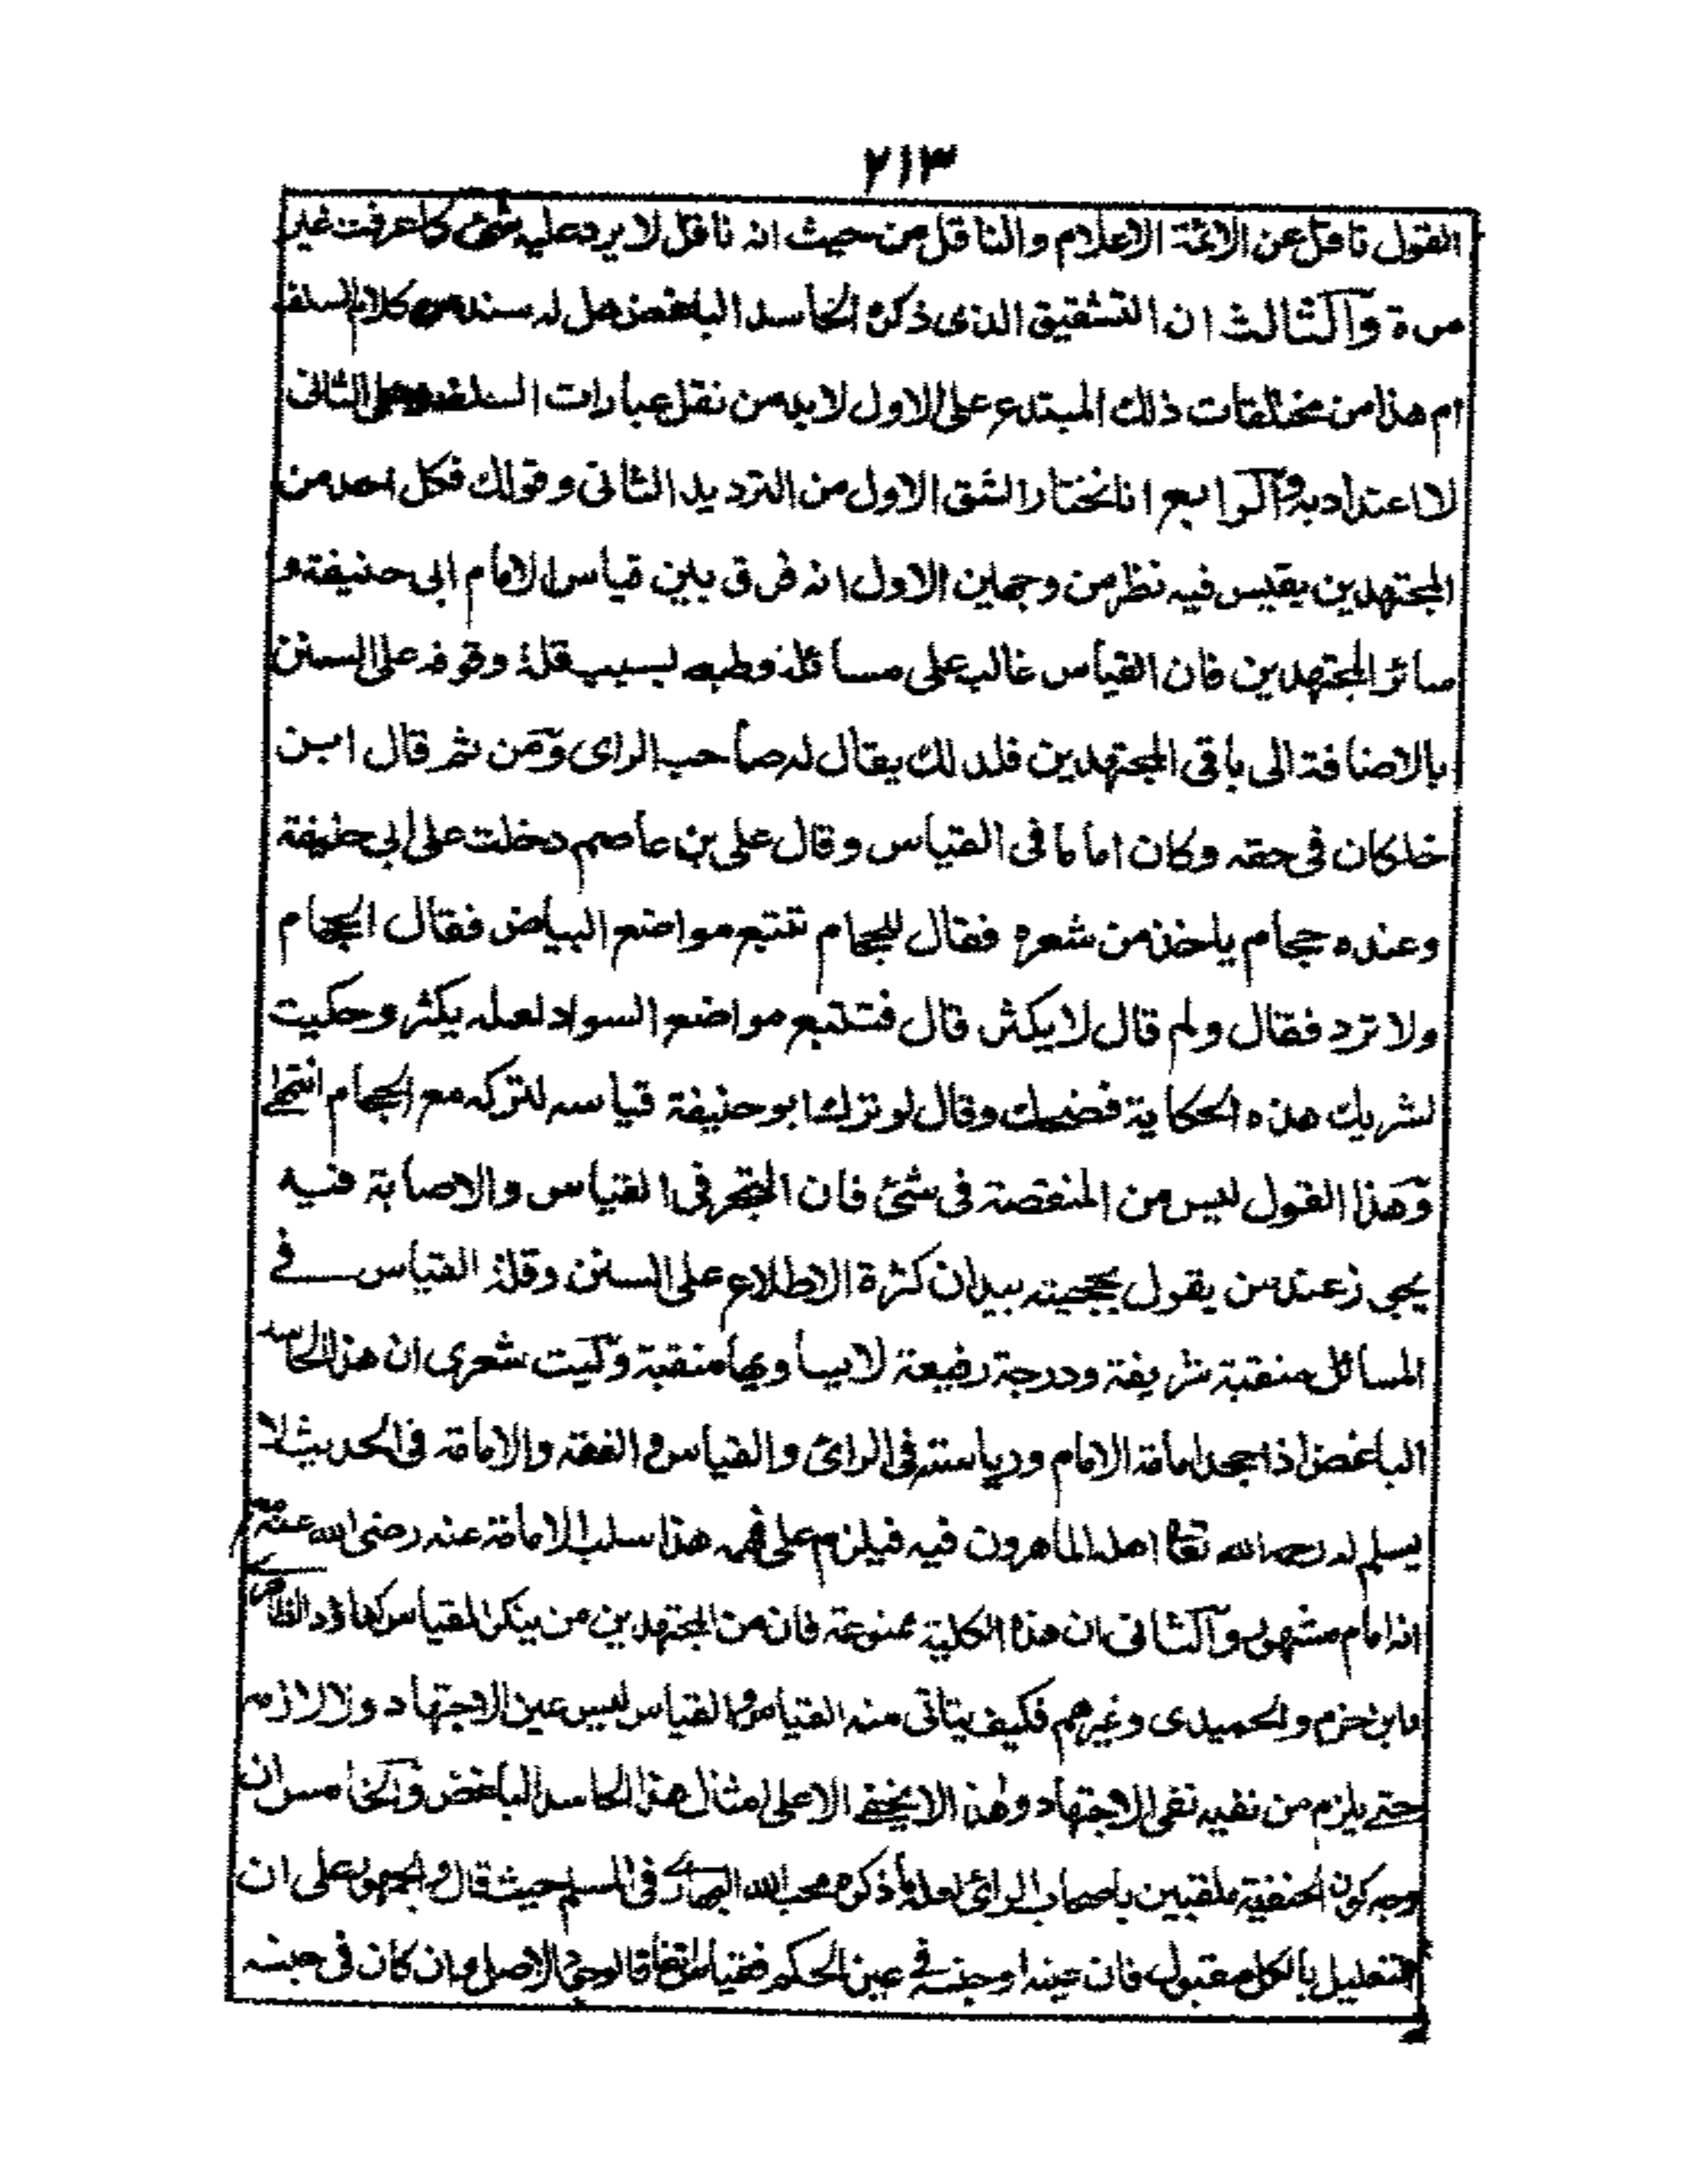 ٢١٣
القول ناقل عن الائمة الاعلام والناقل من حيث انه ناقل لا يرد عليه شئ كما عرفت غير
مرة والثالث ان التشقيق الذى ذكره الحاسد الباغض هل له سند من كلام السلف
ام هذا من مختلقات ذلك المبتدع على الاول لابد من نقل عبارات السلف وعلى الثانى
لا اعتداد به والرابع انا نختار الشق الاول من الترديد الثانى وقولك فكل احد من
المجتهدين يقيس فيه نظر من وجهين الاول انه فرق بين قياس الامام ابى حنيفة و
سائر المجتهدين فان القياس غالب على مسائله وطبعه بسبب قلة وقوفه على السنن
بالاضافة الى باقى المجتهدين فلذلك يقال له صاحب الراى ومن ثم قال ابن
خلكان فى حقه وكان اماما فى القياس وقال على بن عاصم دخلت على ابى حنيفة
وعنده حجام ياخذ من شعره فقال للحجام تتبع مواضع البياض فقال الحجام
ولا تزد فقال ولم قال لا يكثر قال فتتبع مواضع السواد لعله يكثر وحكيت
لشريك هذه الحكاية فضحك وقال لو ترك ابو حنيفة قياسه لتركه مع الحجام انتهى
وهذا القول ليس من المنقصة فى شئ فان التبحر فى القياس والاصابة فيه
يجوز عند من يقول بحجيته بيد ان كثرة الاطلاع على السنن وقلة القياس فى
المسائل منقبة شريفة ودرجة رفيعة لا يساويها منقبة وليت شعرى ان هذا الحاسد
الباغض اذا جحد امامة الامام ورياسته فى الرائ والقياس والفقه والامامة فى الحديث لا
يسلم له رحمه الله تعا احد الماهرون فيه فيلزم على فهمه هذا سلب الامامة عنه رضى الله عنه مع
انه امام مشهور والثانى ان هذه الكلية ممنوعة فان من المجتهدين من ينكر القياس كداؤد الظاهرى
وابن حزم والحميدى وغيرهم فكيف يتاتى منه القياس والقياس ليس عين الاجتهاد ولا لازمه
حتى يلزم من نفيه نفى الاجتهاد وهذا لا يخفى الا على امثال هذا الحاسد الباغض والخامس ان
وجه كون الحنفية ملقبين باصحاب الرائ لعله ما ذكره محب الله البهارى فى المسلم حيث قال والجمهور على ان
التعليل بالكل مقبول فان عينه او جنسه فى عين الحكم فقياس اتفاقا لوجود الاصل وان كان فى جنسه